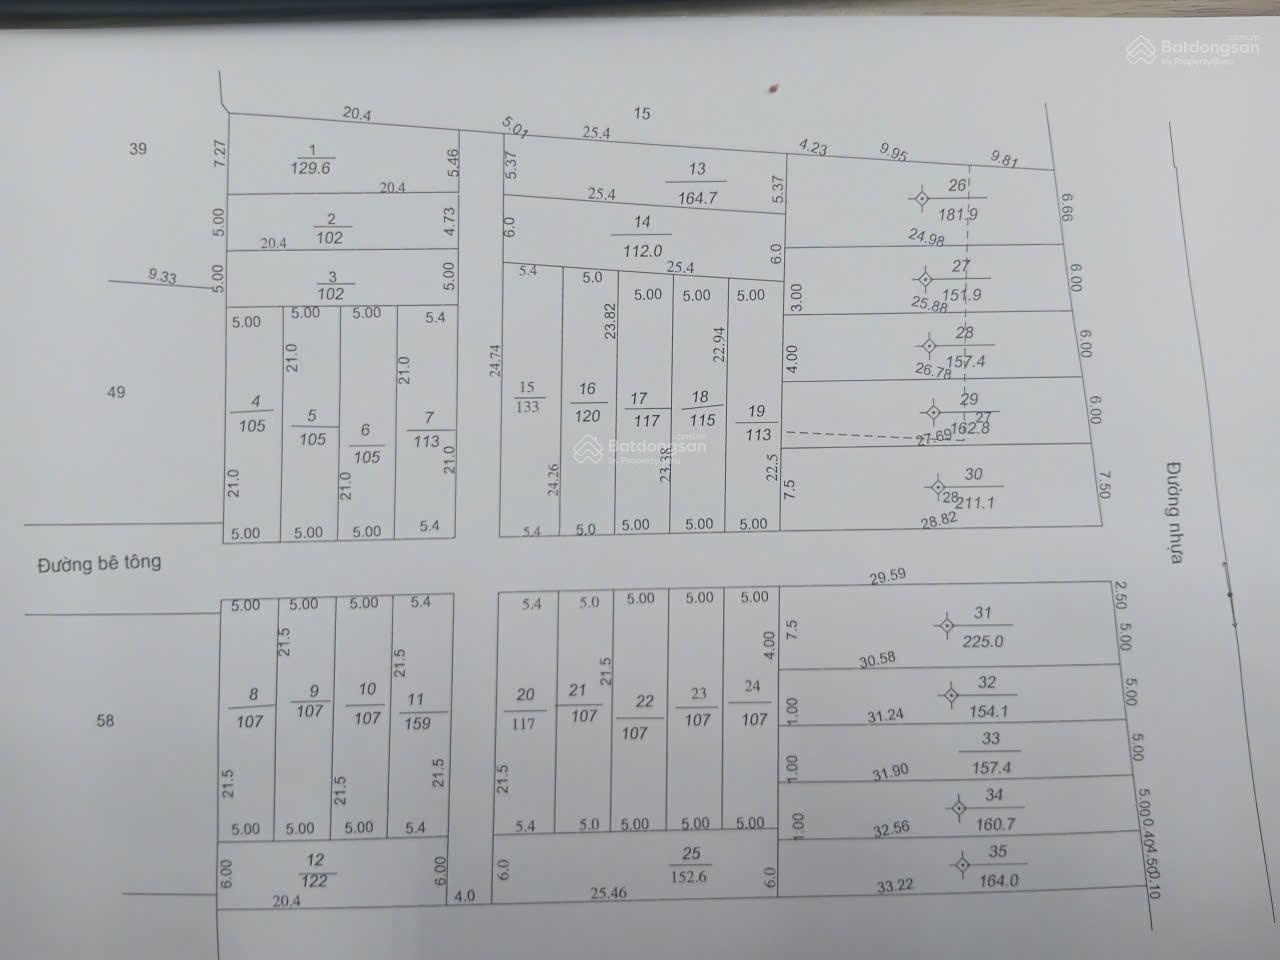 Batdongsan
.com.vn
by PropertyGuru
15
39
20.4
5.01
25.4
4.23
9.95
9.81
7.27
1
129.6
5.46
5.37
13
164.7
5.37
26
181.9
6.66
20.4
25.4
5.00
2
102
4.73
6.0
14
112.0
6.0
24.98
20.4
25.4
9.33
5.00
3
102
5.00
5.4
5.0
27
151.9
6.00
5.00
5.00
5.00
5.4
5.00
5.00
5.00
3.00
25.88
21.0
21.0
24.74
23.82
22.94
4.00
28
157.4
6.00
26.78
49
4
105
5
105
6
105
7
113
15
133
16
120
17
117
18
115
19
113
29
162.8
27
6.00
27.69
Batdongsan
.com.vn
by PropertyGuru
21.0
21.0
21.0
24.26
23.38
22.5
7.5
30
211.1
28
7.50
28.82
5.00
5.00
5.00
5.4
5.4
5.0
5.00
5.00
5.00
Đường bê tông
Đường nhựa
29.59
5.00
5.00
5.00
5.4
5.4
5.0
5.00
5.00
5.00
2.50
21.5
21.5
21.5
4.00
7.5
31
225.0
5.00
30.58
58
8
107
9
107
10
107
11
159
20
117
21
107
22
107
23
107
24
107
1.00
32
154.1
5.00
31.24
21.5
21.5
21.5
21.5
1.00
33
157.4
5.00
31.90
5.00
5.00
5.00
5.4
5.4
5.0
5.00
5.00
5.00
1.00
34
160.7
5.00
0.40
32.56
6.00
12
122
6.00
6.0
25
152.6
6.0
35
164.0
4.50
0.10
33.22
20.4
4.0
25.46